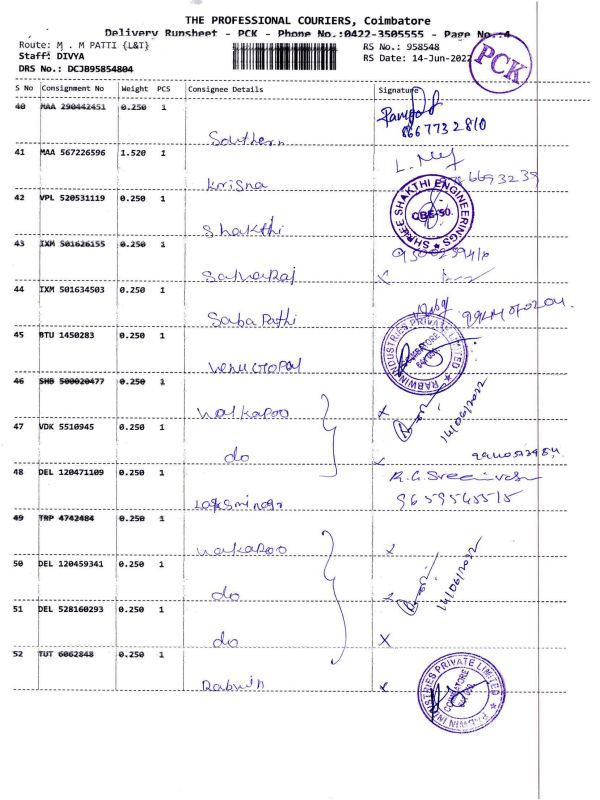 THE PROFESSIONAL COURIERS, Coimbatore
Delivery Runsheet - PCK - Phone No.:0422-3505555 - Page No.:4
Route: M . M PATTI {L&T}
RS No.: 958548
Staff: DIVYA
RS Date: 14-Jun-2022
DRS No.: DCJB95854804
PCK
S No Consignment No Weight PCS Consignee Details Signature
40 MAA 290442451 0.250 1
8667732810
Southern
41 MAA 567226596 1.520 1
Krisna
42 VPL 520531119 0.250 1
SHREE SHAKTHI ENGINEERINGS
CBE-50.
Shakthi
43 IXM 501626155 0.250 1
Salvaraj X
44 IXM 501634503 0.250 1
Saba Pathi
45 BTU 1450283 0.250 1
RABWIN INDUSTRIES PRIVATE LIMITED
COIMBATORE
Venu GOPal
46 SHB 500020477 0.250 1
Walkaroo x
14/06/2022
47 VDK 5510945 0.250 1
do x
48 DEL 120471109 0.250 1
9659565515
49 TRP 4742484 0.250 1
Wakaroo x
50 DEL 120459341 0.250 1
do x
14/06/2022
51 DEL 528160293 0.250 1
do X
52 TUT 6062848 0.250 1
Rabwin x
RABWIN INDUSTRIES PRIVATE LIMITED
COIMBATORE